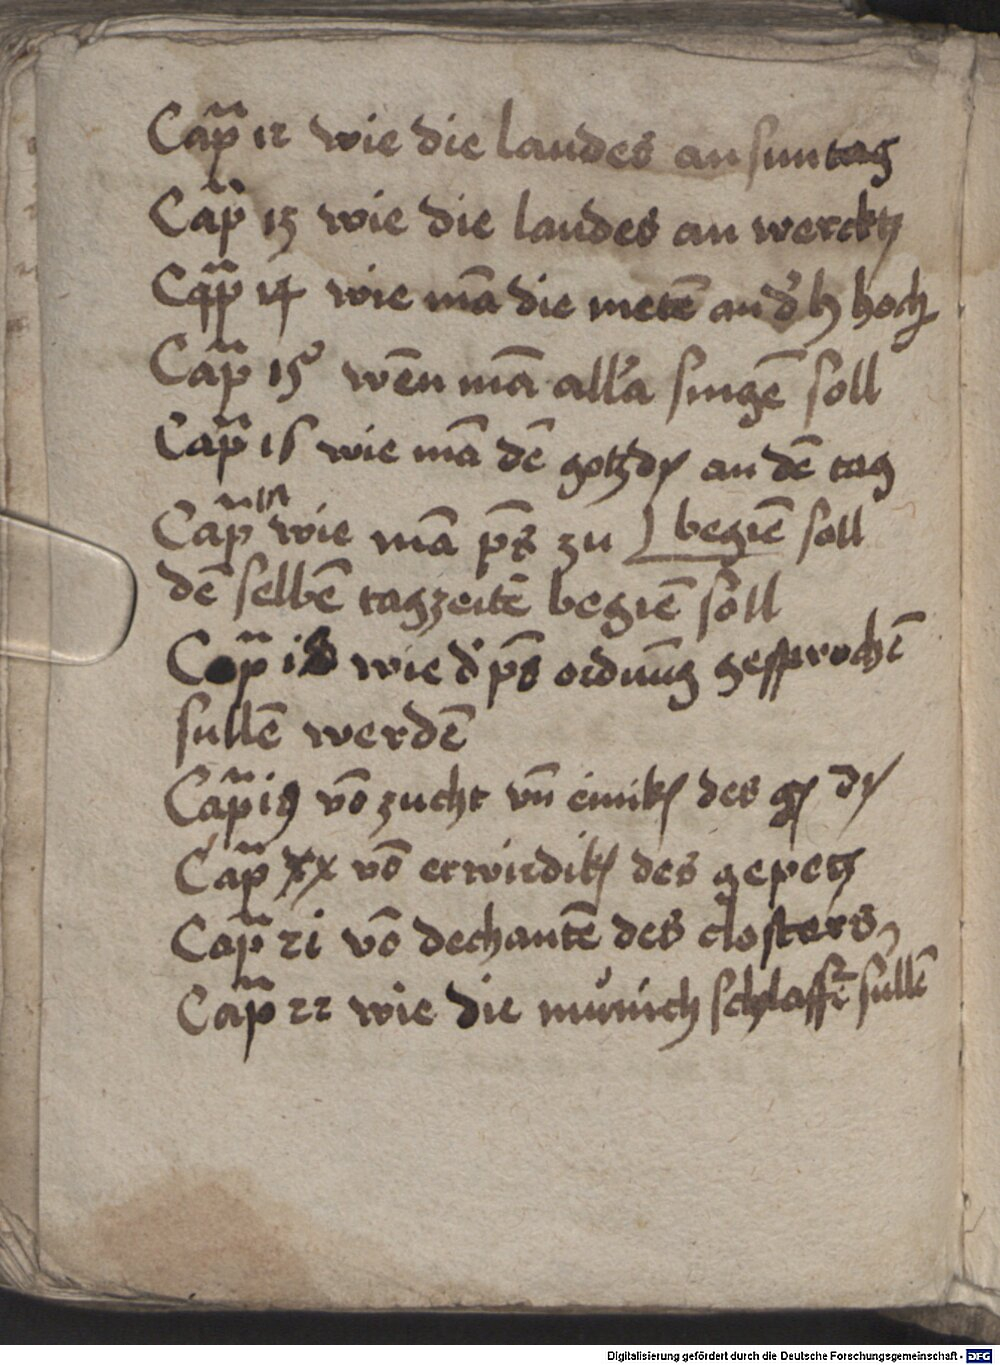 Cap̄ 12 wie die laudes an suntag
Cap̄ 13 wie die laudes an wercktz
Cap̄ 14 wie mā die metē an d' h hoch
Cap̄ 15 wēn mā all'a singē soll
Cap̄ 16 wie mā dē gotzd an dē tag
Cap̄ wie mā p̄s zu begiē soll
dē selbē tagzeitē begiē soll
Cap̄ 18 wie d' p̄s ordnūg gesprochē
sullē werdē
Cap̄ 19 vō zucht vn̄ einik des g d
Cap̄ xx vō erwirdik des gepetz
Cap̄ 21 vō dechantē des closters
Cap̄ 22 wie die münich schlaffē süllē
Digitalisierung gefördert durch die Deutsche Forschungsgemeinschaft - DFG